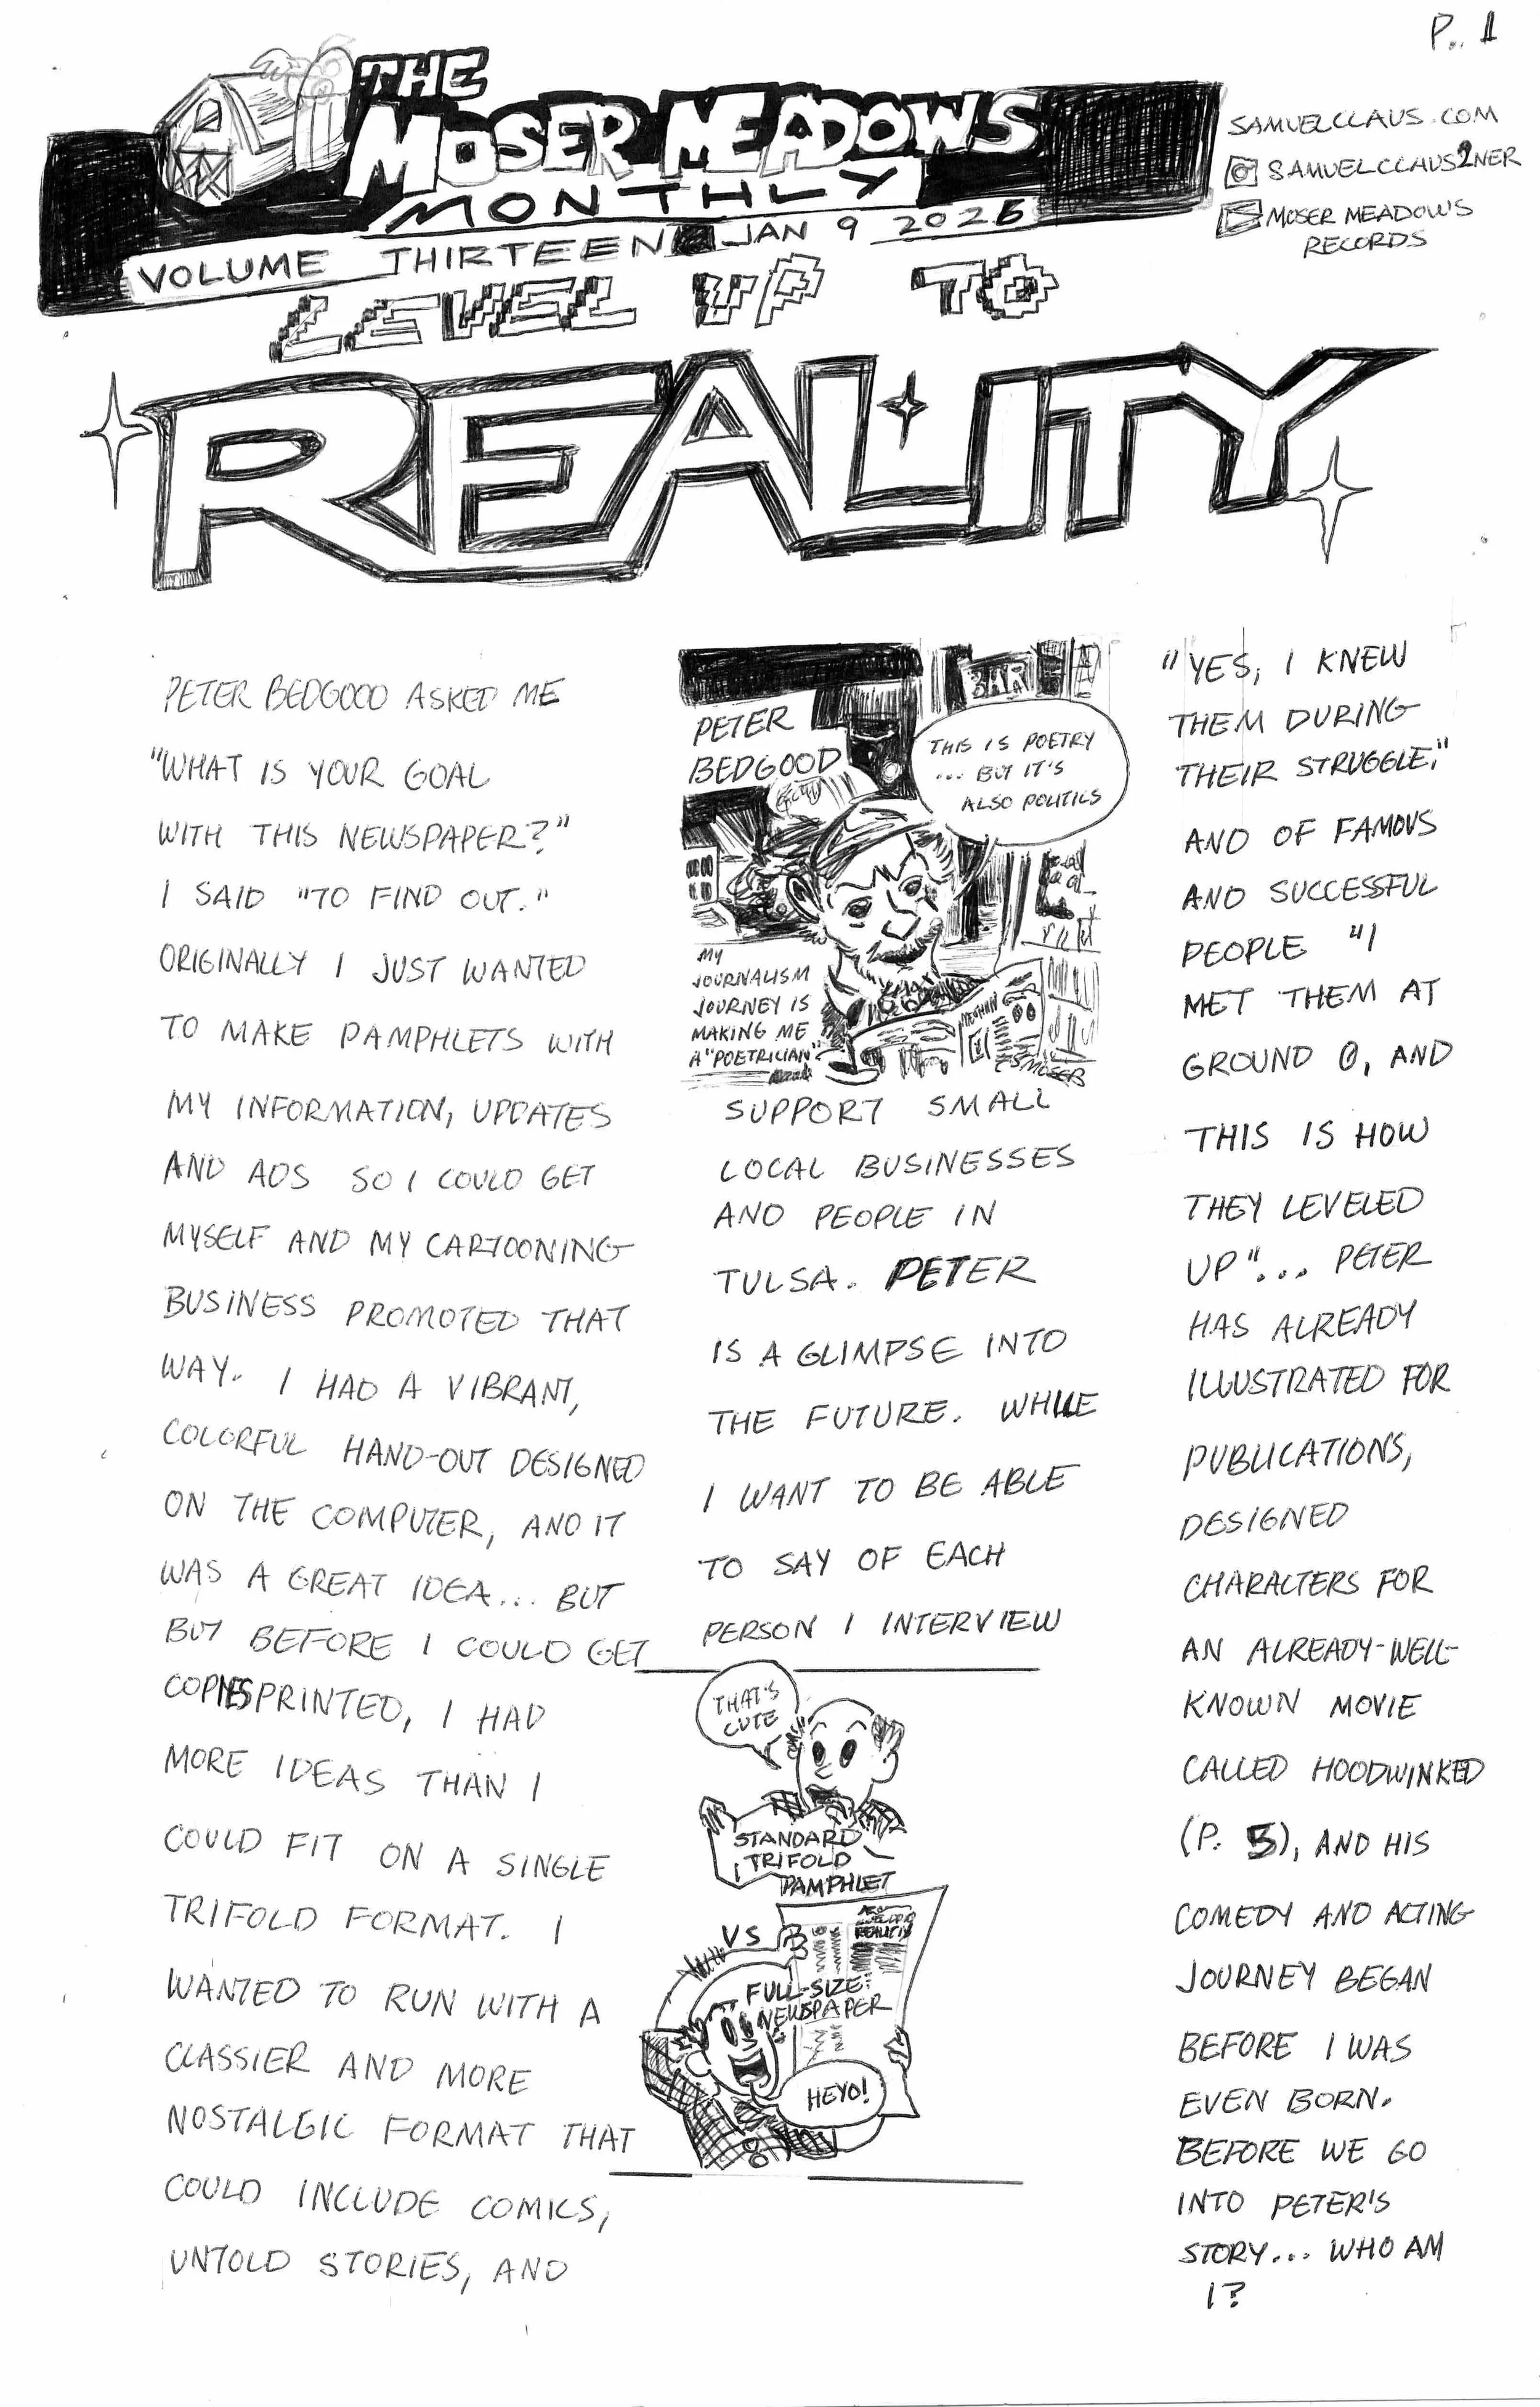 P. 1
THE
MOSER MEADOWS
MONTHLY
VOLUME THIRTEEN JAN 9 2026
SAMUELCCLAUS.COM
SAMUELCCLAUS2NER
MOSER MEADOWS
RECORDS
LEVEL UP TO
REALITY
PETER BEDGOOD ASKED ME
"WHAT IS YOUR GOAL
WITH THIS NEWSPAPER?"
I SAID "TO FIND OUT."
ORIGINALLY I JUST WANTED
TO MAKE PAMPHLETS WITH
MY INFORMATION, UPDATES
AND ADS SO I COULD GET
MYSELF AND MY CARTOONING
BUSINESS PROMOTED THAT
WAY. I HAD A VIBRANT,
COLORFUL HAND-OUT DESIGNED
ON THE COMPUTER, AND IT
WAS A GREAT IDEA... BUT
BUT BEFORE I COULD GET
COPIES PRINTED, I HAD
MORE IDEAS THAN I
COULD FIT ON A SINGLE
TRIFOLD FORMAT. I
WANTED TO RUN WITH A
CLASSIER AND MORE
NOSTALGIC FORMAT THAT
COULD INCLUDE COMICS,
UNTOLD STORIES, AND
BAR
PETER
BEDGOOD
THIS IS POETRY
... BUT IT'S
ALSO POLITICS
MY
JOURNALISM
JOURNEY IS
MAKING ME
A "POETRICIAN"
MEGHAN
CSMOSER
SUPPORT SMALL
LOCAL BUSINESSES
AND PEOPLE IN
TULSA. PETER
IS A GLIMPSE INTO
THE FUTURE. WHILE
I WANT TO BE ABLE
TO SAY OF EACH
PERSON I INTERVIEW
THAT'S
CUTE
STANDARD
TRIFOLD
PAMPHLET
VS
REALITY
FULL-SIZE
NEWSPAPER
HEYO!
"YES, I KNEW
THEM DURING
THEIR STRUGGLE,"
AND OF FAMOUS
AND SUCCESSFUL
PEOPLE "I
MET THEM AT
GROUND 0, AND
THIS IS HOW
THEY LEVELED
UP"... PETER
HAS ALREADY
ILLUSTRATED FOR
PUBLICATIONS,
DESIGNED
CHARACTERS FOR
AN ALREADY-WELL-
KNOWN MOVIE
CALLED HOODWINKED
(P. 5), AND HIS
COMEDY AND ACTING
JOURNEY BEGAN
BEFORE I WAS
EVEN BORN.
BEFORE WE GO
INTO PETER'S
STORY... WHO AM
I?